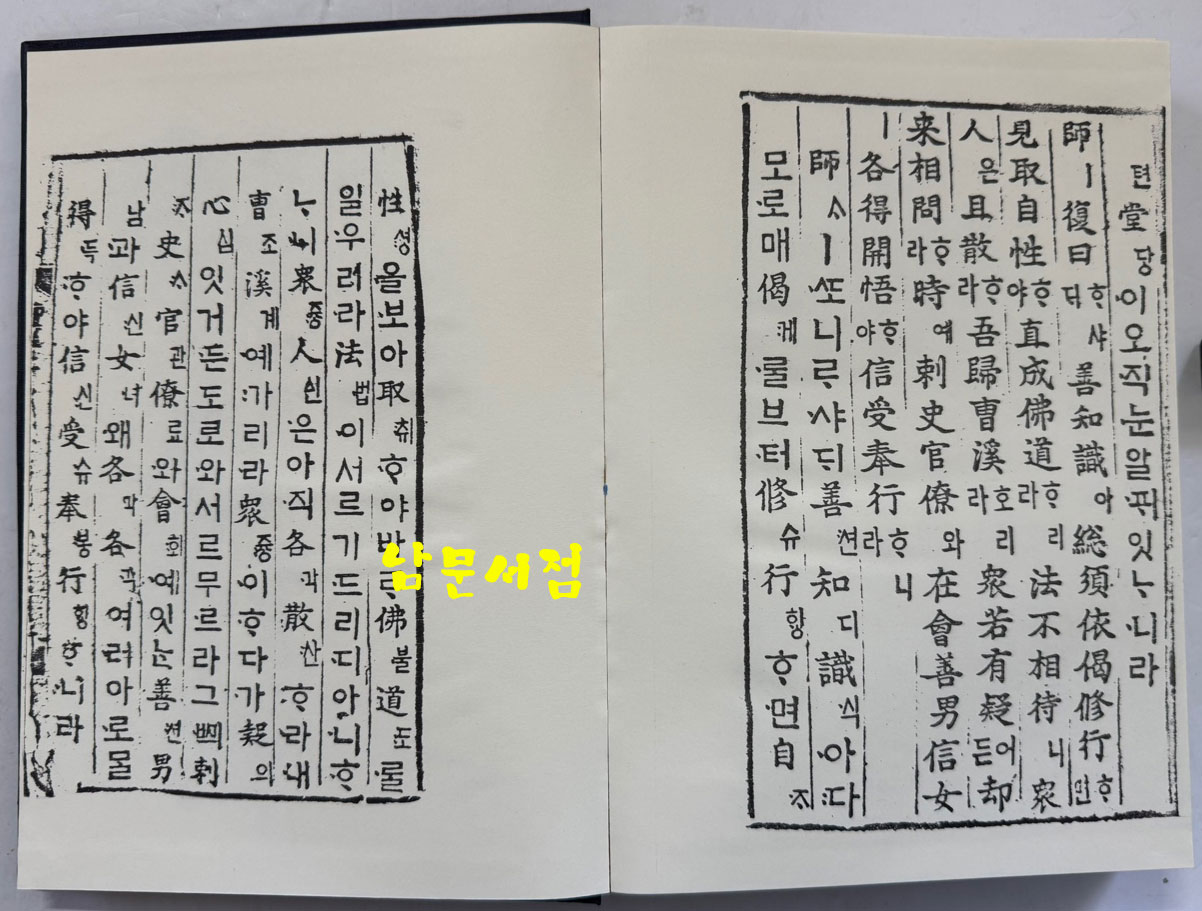 텬堂당이오직눈알ᄑᆡ잇ᄂᆞ니라
師ㅣ復曰ᄒᆞ샤ᄃᆡ善知識아総須依偈修行ᄒᆞ면
見取自性ᄒᆞ야直成佛道ᄒᆞ리라法不相待니衆
人은且散ᄒᆞ라吾歸曹溪호리라衆若有疑어든却
来相問ᄒᆞ라時예剌史官僚와在會善男信女
ㅣ各得開悟ᄒᆞ야信受奉行ᄒᆞ니라
師ᄉᆞㅣᄯᅩ니ᄅᆞ샤ᄃᆡ善쎤知디識식아다
모로매偈께ᄅᆞᆯ브터修슈行ᄒᆡᆼᄒᆞ면自ᄌᆞ
性셩을보아取츄ᄒᆞ야바ᄅᆞ佛불道도ᄅᆞᆯ
일우려라法법이서르기드리디아니ᄒᆞ
ᄂᆞ니衆즁人ᅀᅵᆫ은아직各각散산ᄒᆞ라내
曹조溪계예가리라衆즁이ᄒᆞ다가疑의
心심잇거든도로와서르무르라그ᄢᅴ剌
ᄌᆞ史ᄉᆞ官관僚료와會회예잇ᄂᆞᆫ善쎤男
남과信신女녀왜各각各각여러아로ᄆᆞᆯ
得득ᄒᆞ야信신受슈奉봉行ᄒᆡᆼᄒᆞ니라
남문서점